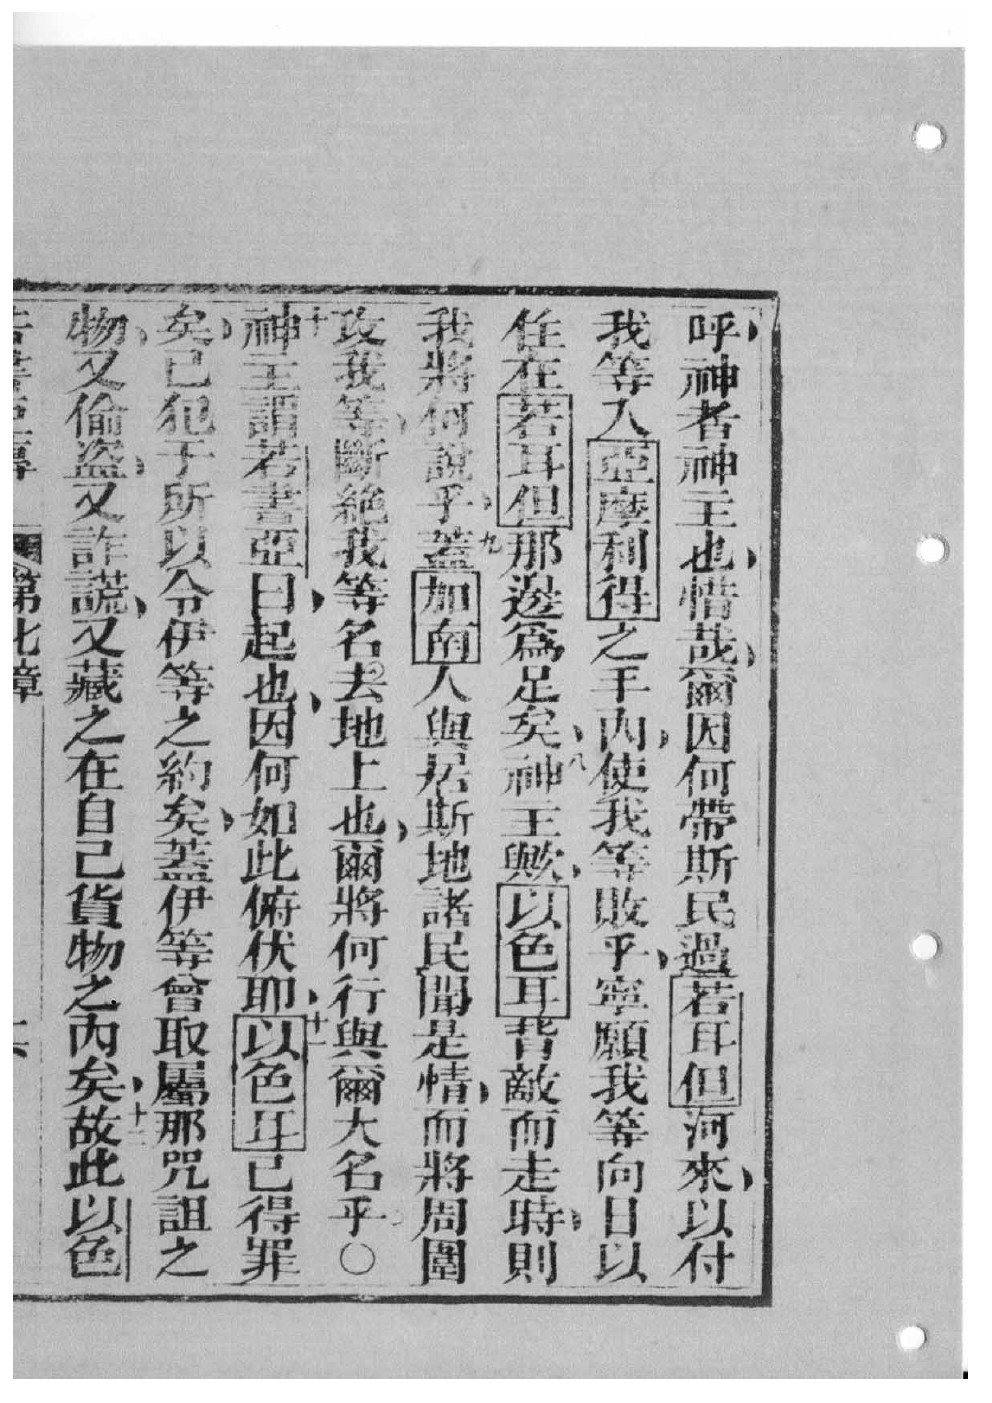 呼神者神主也惜哉爾因何帶斯民過若耳但河來以付
我等入亞摩利得之手內使我等敗乎寧願我等向日以
住在若耳但那邊爲足矣八神主歟以色耳背敵而走時則
我將何說乎九蓋加南人與居斯地諸民聞是情而將周圍
攻我等斷絕我等名去地上也爾將何行與爾大名乎〇
十神主謂若書亞曰起也因何如此俯伏耶十一以色耳已得罪
矣已犯于所以令伊等之約矣蓋伊等曾取屬那咒詛之
物又偷盜又詐謊又藏之在自己貨物之內矣十二故此以色
若書亞傳 第七章